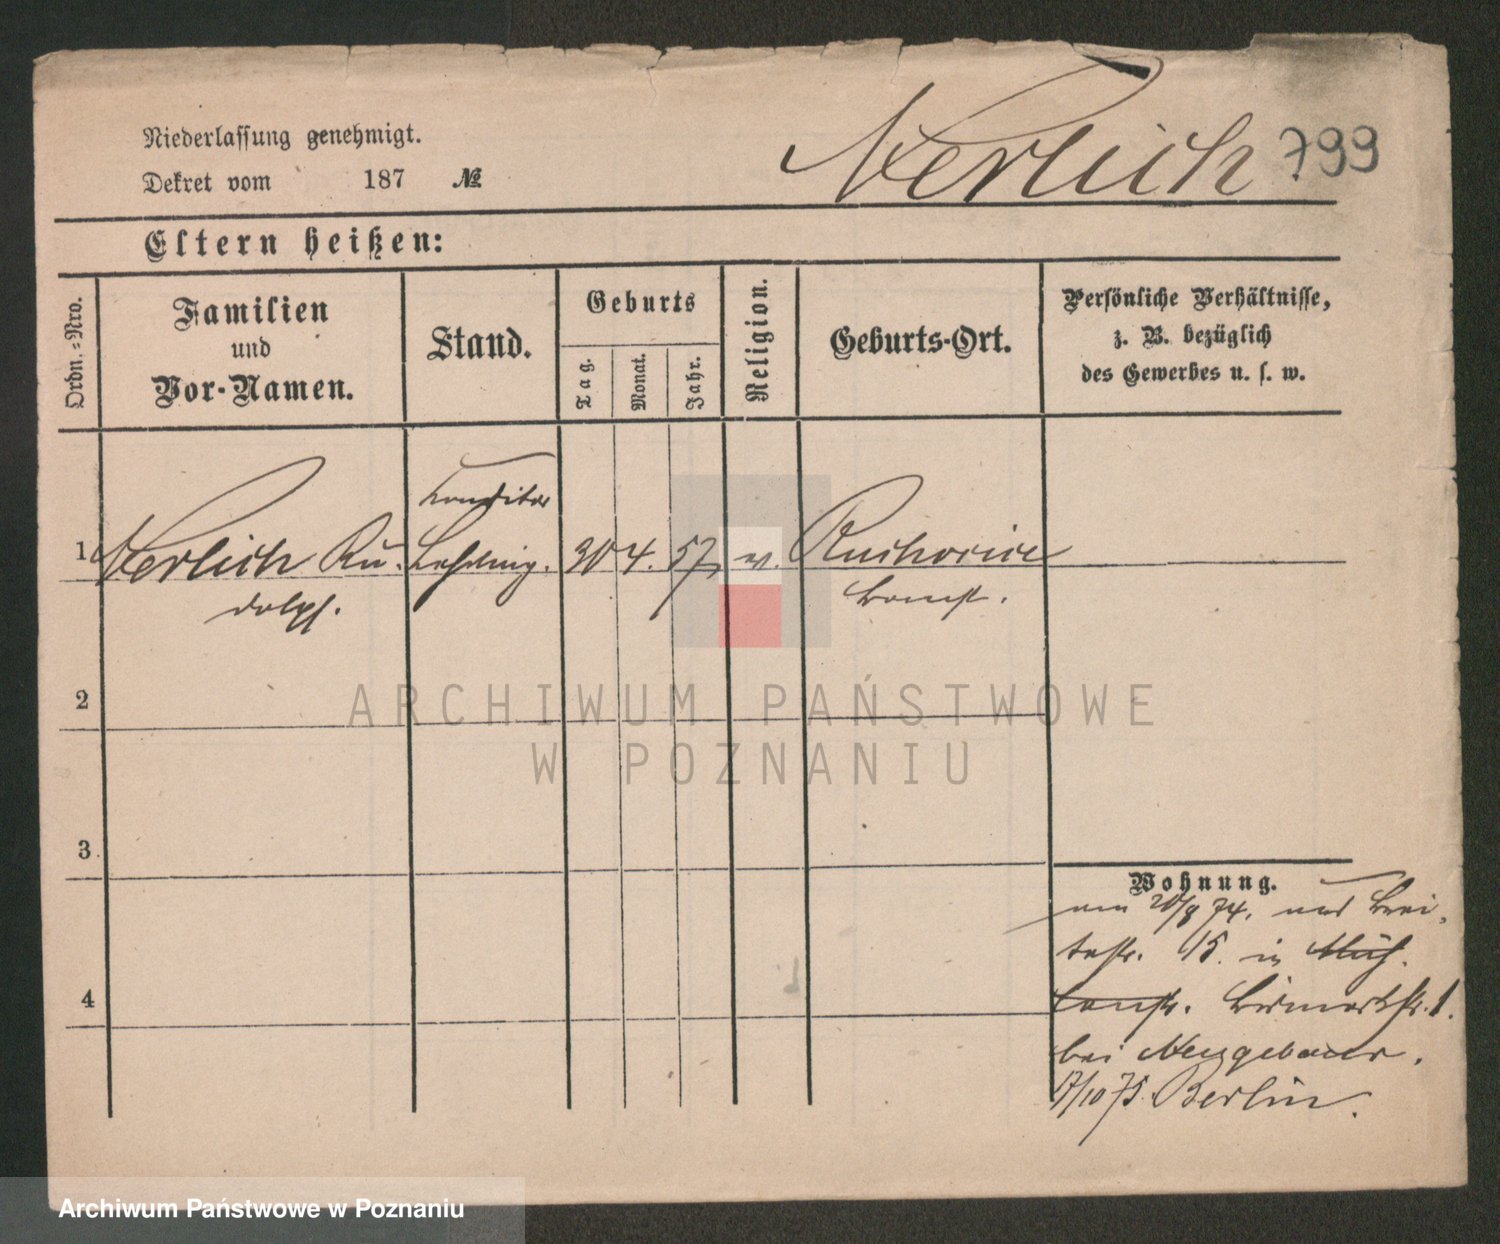 Niederlassung genehmigt.
Nerlich 799
Dekret vom 187 №
Eltern heißen:
Ordn.-Nro.
Familien
und
Vor-Namen.
Stand.
Geburts
Tag.
Monat.
Jahr.
Religion.
Geburts-Ort.
Persönliche Verhältnisse,
z. B. bezüglich
des Gewerbes u. s. w.
Conditor
1 Nerlich Ru- Lehrling. 30 4. 57
dolph.
2
3
4
Wohnung.
am 20/8 74.
15. in
bei Neugebauer.
17/10 75. Berlin.
ARCHIWUM PAŃSTWOWE
W POZNANIU
Archiwum Państwowe w Poznaniu